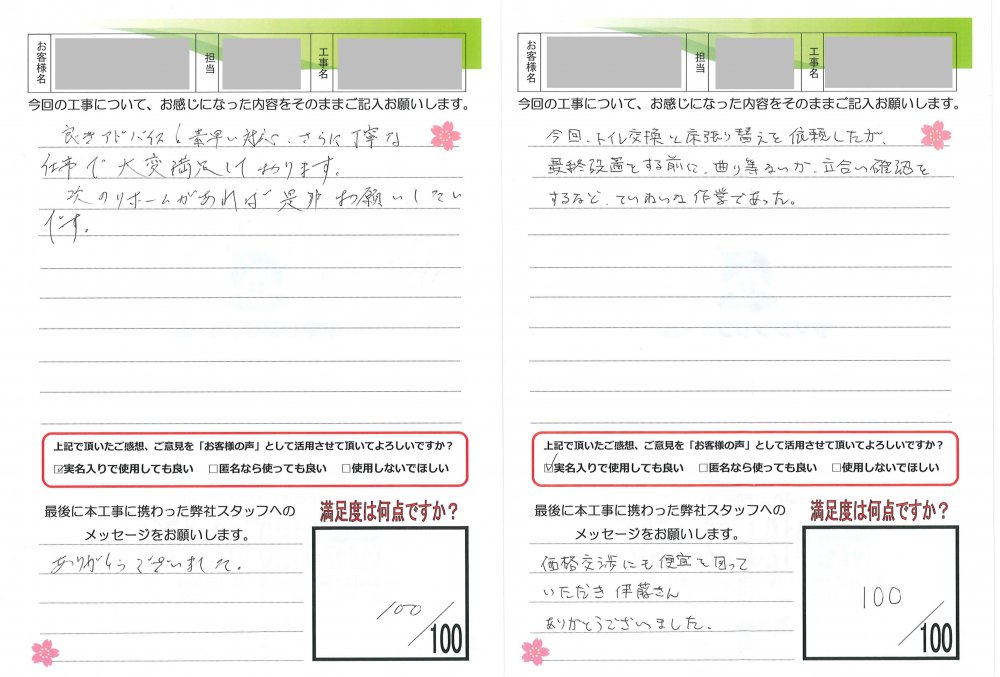 お客様名
担当
工事名
今回の工事について、お感じになった内容をそのままご記入お願いします。
良きアドバイスと素早い対応、さらに丁寧な
仕事で大変満足しております。
次のリホームがあれば是非お願いしたい
です。
上記で頂いたご感想、ご意見を「お客様の声」として活用させて頂いてよろしいですか？
☑実名入りで使用しても良い □匿名なら使っても良い □使用しないでほしい
最後に本工事に携わった弊社スタッフへの
メッセージをお願いします。
ありがとうございました。
満足度は何点ですか？
100/100
お客様名
担当
工事名
今回の工事について、お感じになった内容をそのままご記入お願いします。
今回、トイレ交換と床張り替えを依頼したが、
最終設置をする前に、曲り等ないか、立合い確認を
するなど、ていねいな作業であった。
上記で頂いたご感想、ご意見を「お客様の声」として活用させて頂いてよろしいですか？
☑実名入りで使用しても良い □匿名なら使っても良い □使用しないでほしい
最後に本工事に携わった弊社スタッフへの
メッセージをお願いします。
価格交渉にも便宜を図って
いただき伊藤さん
ありがとうございました。
満足度は何点ですか？
100/100